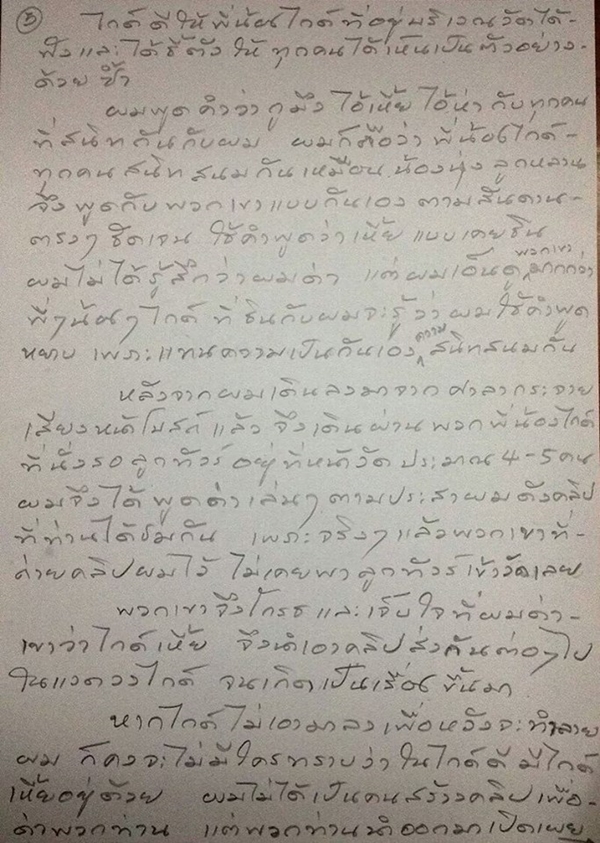 ③ ไกด์ดีให้พี่น้องไกด์ที่อยู่บริเวณวัดได้-
ฟังและได้ชี้ตัวให้ทุกคนได้เห็นเป็นตัวอย่าง-
ด้วยซ้ำ
ผมพูดคำว่า กู มึง ไอ้เหี้ย ไอ้ห่า กับทุกคน
ที่สนิทกันกับผม ผมก็ถือว่า พี่น้องไกด์-
ทุกคนสนิทสนมกันเหมือนน้องนุ่ง ลูกหลาน
จึงพูดกับพวกเขาแบบกันเอง ตามสันดาน-
ตรงๆ ชัดเจน ใช้คำพูดว่าเหี้ย แบบเคยชิน
ผมไม่ได้รู้สึกว่าผมด่า แต่ผมเอ็นดูพวกเขามากกว่า
พี่ๆน้องๆไกด์ ที่ชินกับผมจะรู้ว่า ผมใช้คำพูด
หยาบ เพราะแทนความเป็นกันเองความสนิทสนมกัน
หลังจากผมเดินลงมาจาก ศาลากระจาย
เสียงหน้าโบสถ์ แล้ว จึงเดินผ่าน พวกพี่น้องไกด์
ที่นั่งรอ ลูกทัวร์ อยู่ที่หน้าวัด ประมาณ 4-5 คน
ผมจึงได้พูดด่าเล่นๆ ตามประสาผม ดังคลิป
ที่ท่านได้ชมกัน เพราะจริงๆแล้วพวกเขาที่-
ถ่ายคลิปผมไว้ ไม่เคยพาลูกทัวร์เข้าวัดเลย
พวกเขาจึงโกรธ และเจ็บใจที่ผมด่า-
เขาว่าไกด์เหี้ย จึงนำเอาคลิปส่งกันต่อๆไป
ในแวดวงไกด์ จนเกิดเป็นเรื่องขึ้นมา
หากไกด์ไม่เอามาลงเพื่อหวังจะทำลาย
ผม ก็คงจะไม่มีใครทราบว่า ในไกด์ดี มีไกด์
เหี้ยอยู่ด้วย ผมไม่ได้เป็นคนสร้างคลิปเพื่อ-
ด่าพวกท่าน แต่พวกท่านนำออกมาเปิดเผย